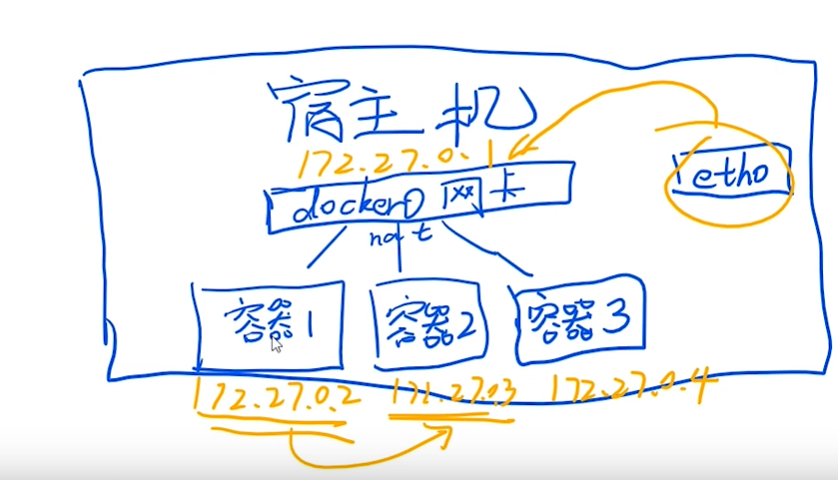 宿主机
172.27.0.1
docker0 网卡
eth0
nat
容器1
容器2
容器3
172.27.0.2
172.27.0.3
172.27.0.4